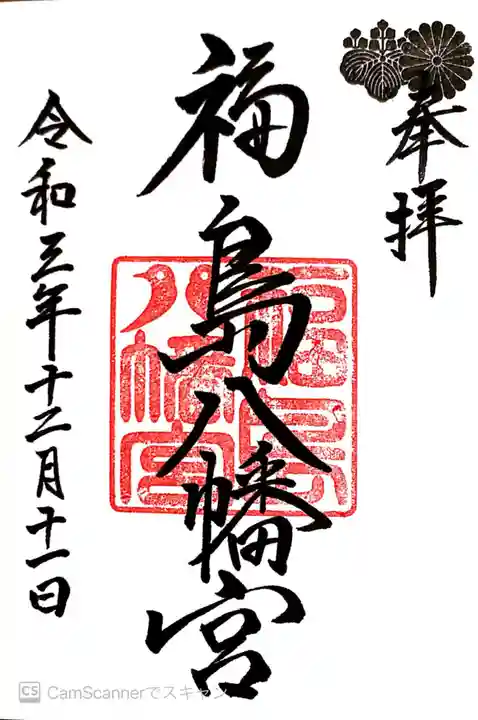 奉拝
福島八幡宮
福島
八幡宮
令和三年十二月十一日
CS CamScannerでスキャン